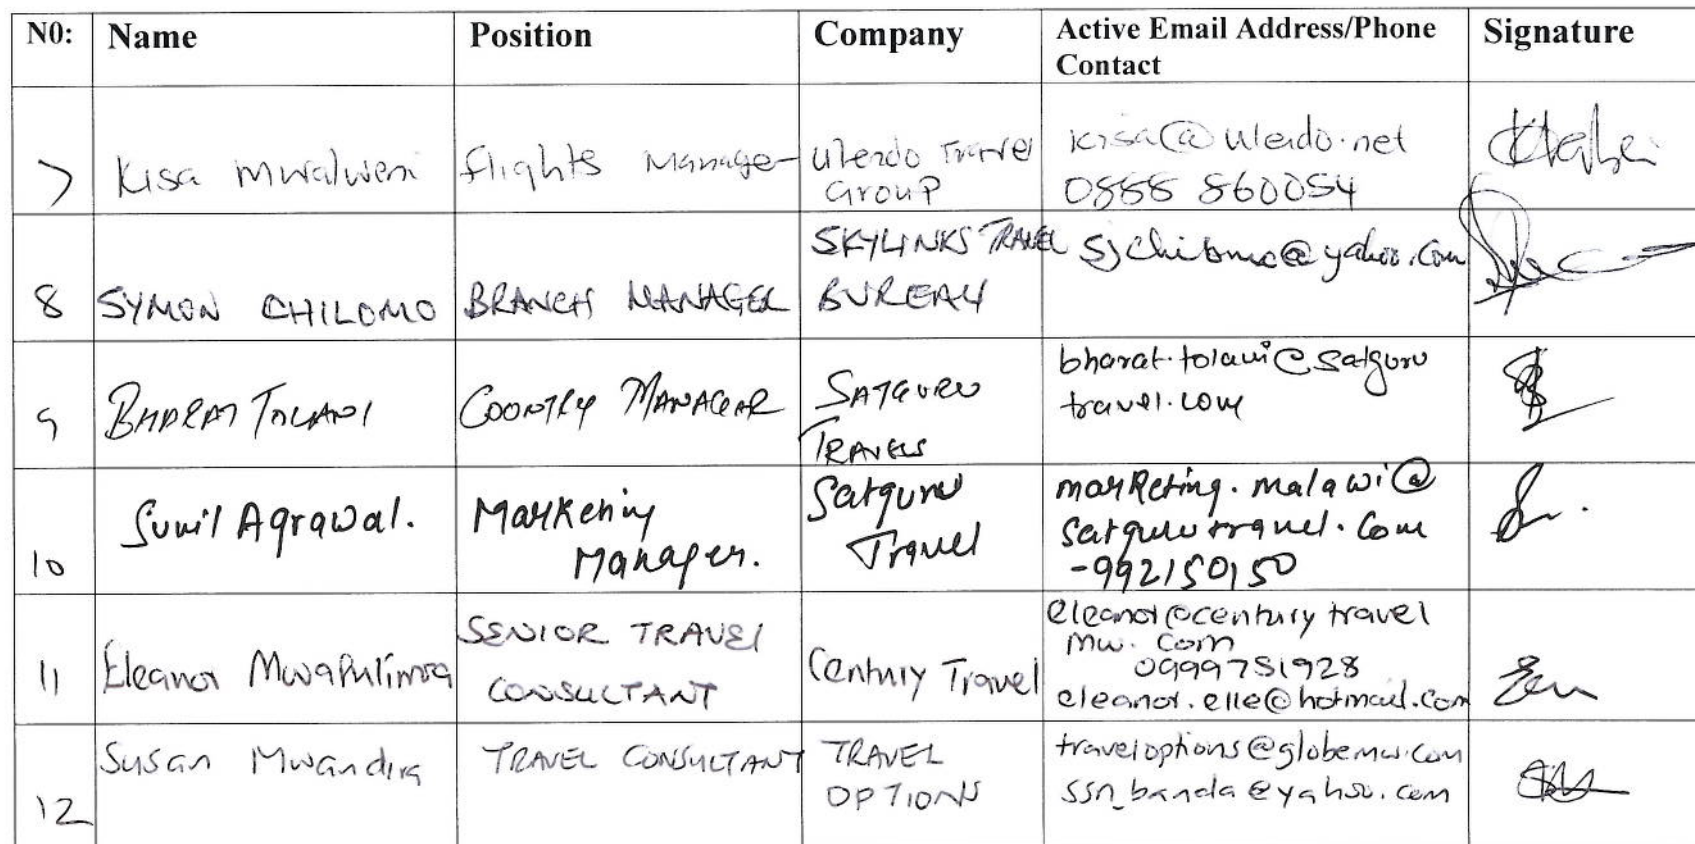 N0: Name Position Company Active Email Address/Phone Contact Signature
7 Kisa Mwalweni flights Manager Ulendo Travel Group kisa@ulendo.net 0888 860054
8 SYMON CHILOMO BRANCH MANAGER SKYLINKS TRAVEL BUREAU sjchilomo@yahoo.com
9 BHARAT TOLANI COONTRY MANAGER SATGURU TRAVELS bharat.tolani@satguru travel.com
10 Sunil Agrawal. Marketing Manager. Satguru Travel marketing.malawi@ satgurutravel.com -992150150
11 Eleanor SENIOR TRAVEL CONSULTANT Century Travel eleanor@century travel mw.com 0999751928 eleanor.elle@hotmail.com
12 Susan Mwandira TRAVEL CONSULTANT TRAVEL OPTIONS traveloptions@globemw.com ssn_banda@yahoo.com